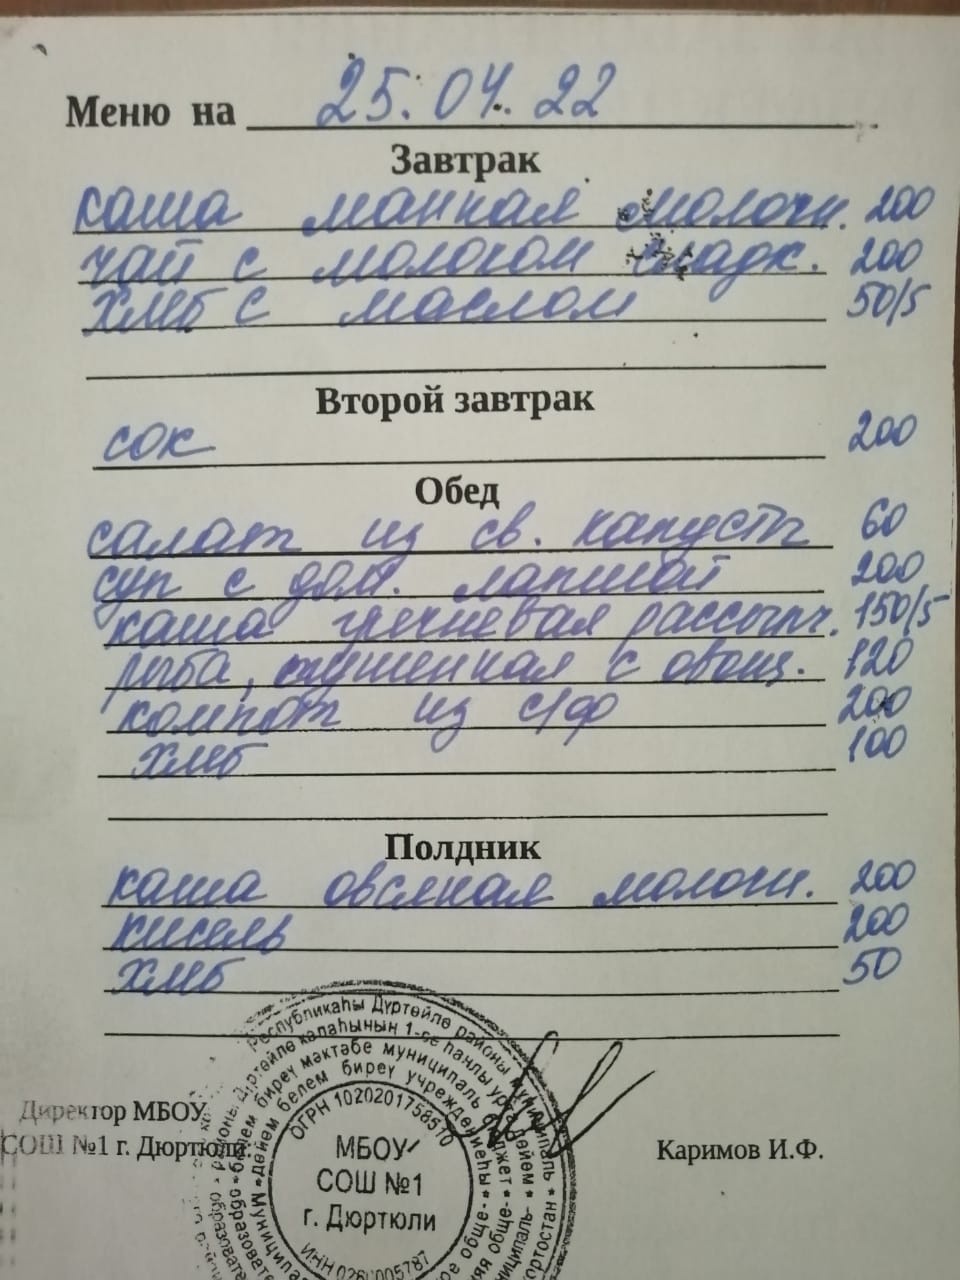 Меню на 25.04.22
Завтрак
каша манная молочн. 200
чай с молоком сладк. 200
хлеб с маслом 50/5
Второй завтрак
сок 200
Обед
салат из св. капусты 60
суп с дом. лапшой 200
каша гречневая рассыпч. 150/5
рыба, тушенная с овощ. 120
компот из с/ф 200
хлеб 100
Полдник
каша овсяная молочн. 200
кисель 200
хлеб 50
Директор МБОУ
СОШ №1 г. Дюртюли: Каримов И.Ф.
Республикаһы Дүртөйлө районы муниципаль
Дүртөйлө ҡалаһының 1-се һанлы урта дөйөм
белем биреү мәктәбе муниципаль бюджет
дөйөм белем биреү учреждениеһы
ОГРН 1020201758510
МБОУ
СОШ №1
г. Дюртюли